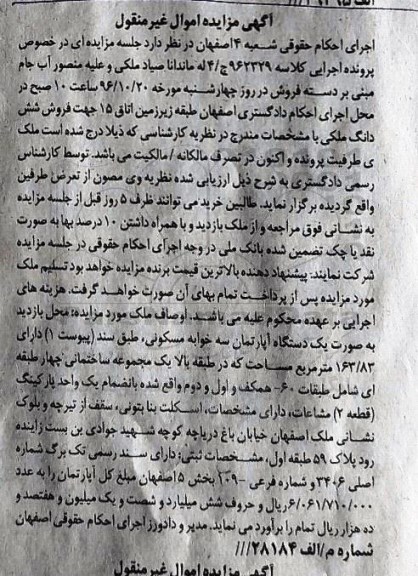 آگهی مزایده اموال غیرمنقول
اجرای احکام حقوقی شعبه ۴ اصفهان در نظر دارد جلسه مزایده ای در خصوص
پرونده اجرایی کلاسه ۹۶۲۳۲۹ج/۴ له ماندانا صیاد ملکی و علیه منصور آب جام
مبنی بر دسته فروش در روز چهارشنبه مورخه ۹۶/۱۰/۲۰ ساعت ۱۰ صبح در
محل اجرای احکام دادگستری اصفهان طبقه زیرزمین اتاق ۱۵ جهت فروش شش
دانگ ملکی با مشخصات مندرج در نظریه کارشناسی که ذیلا درج شده است ملک
ی طرفیت پرونده و اکنون در تصرف مالکانه / مالکیت می باشد. توسط کارشناس
رسمی دادگستری به شرح ذیل ارزیابی شده نظریه وی مصون از تعرض طرفین
واقع گردیده برگزار نماید. طالبین خرید می توانند ظرف ۵ روز قبل از جلسه مزایده
به نشانی فوق مراجعه و از ملک بازدید و با همراه داشتن ۱۰ درصد بها به صورت
نقد یا چک تضمین شده بانک ملی در وجه اجرای احکام حقوقی در جلسه مزایده
شرکت نمایند. پیشنهاد دهنده بالاترین قیمت برنده مزایده خواهد بود تسلیم ملک
مورد مزایده پس از پرداخت تمام بهای آن صورت خواهد گرفت. هزینه های
اجرایی بر عهده محکوم علیه می باشد. اوصاف ملک مورد مزایده: محل بازدید
به صورت یک دستگاه آپارتمان سه خوابه مسکونی، طبق سند (پیوست ۱) دارای
۱۶۳/۸۳ مترمربع مساحت که در طبقه بالا یک مجموعه ساختمانی چهار طبقه
ای شامل طبقات ۶۰- همکف و اول و دوم واقع شده بانضمام یک واحد پارکینگ
(قطعه ۲) مشاعات، دارای مشخصات، اسکلت بنا بتونی، سقف از تیرچه و بلوک
نشانی ملک اصفهان خیابان باغ دریاچه کوچه شهید جوادی بن بست زاینده
رود پلاک ۵۹ طبقه اول، مشخصات ثبتی: دارای سند رسمی تک برگ شماره
اصلی ۳۴۰۶ و شماره فرعی بخش ۵ اصفهان مبلغ کل آپارتمان را به عدد
۶/۰۶۱/۷۱۰/۰۰۰ ریال و حروف شش میلیارد و شصت و یک میلیون و هفتصد و
ده هزار ریال تمام را برآورد می نماید. مدیر و دادورز اجرای احکام حقوقی اصفهان
شماره م/الف ۲۸۱۸۴///
آگهی مزایده اموال غیرمنقول